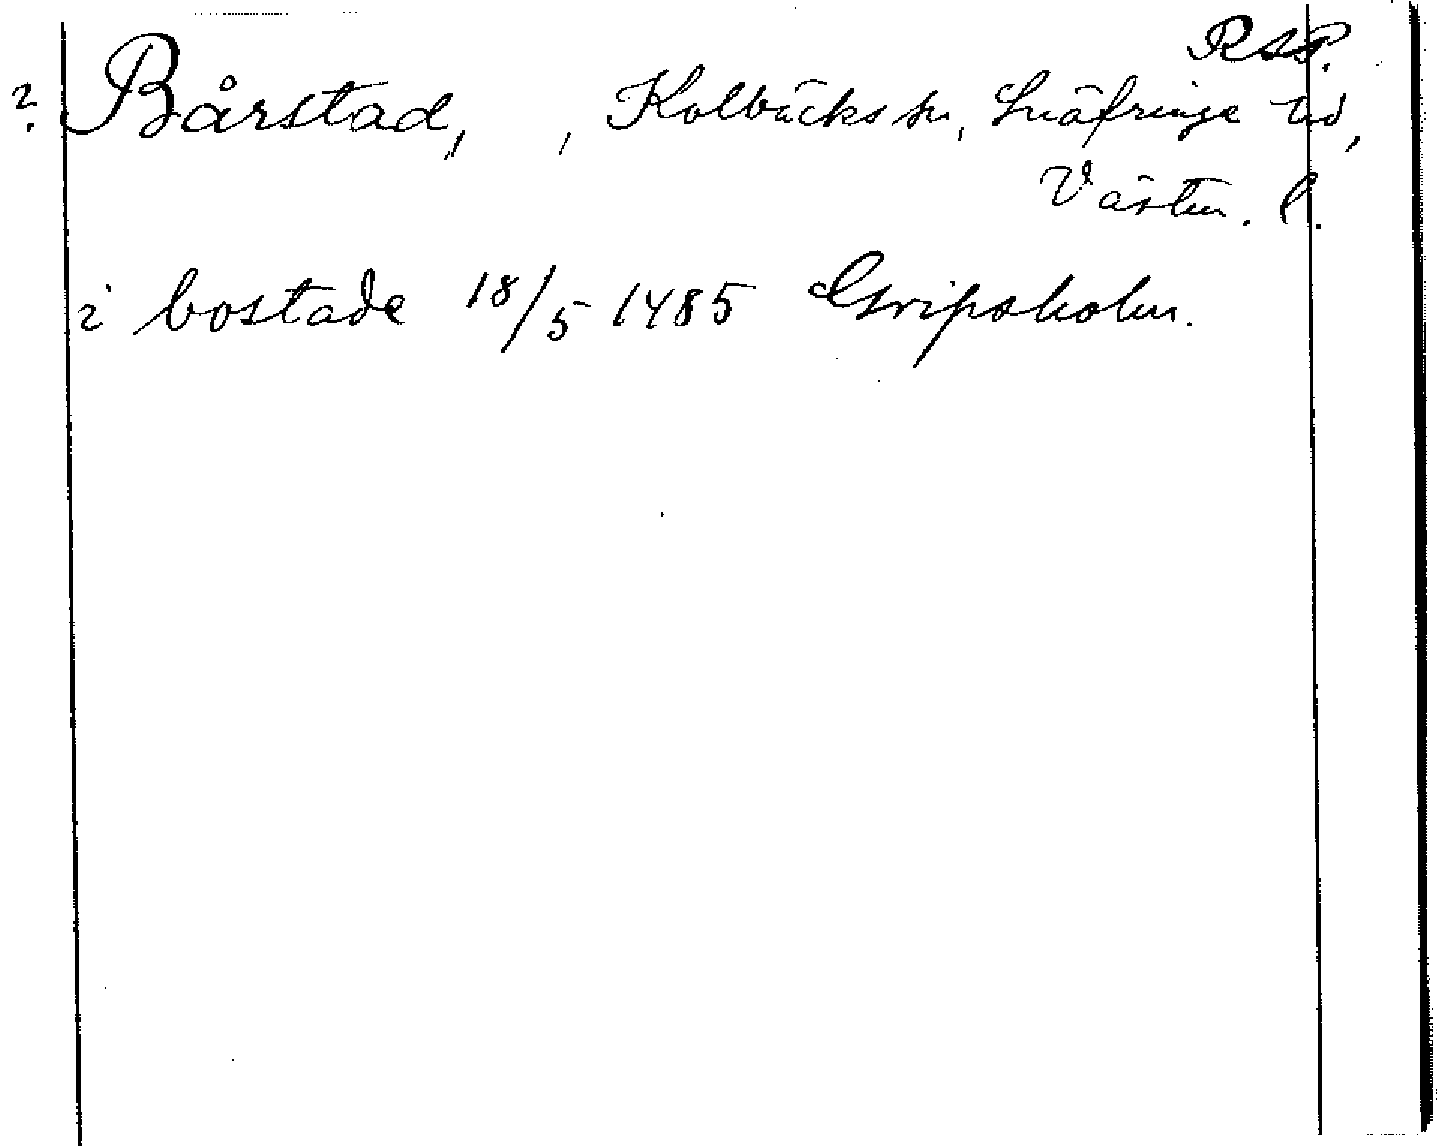 RAP.
? Bårstad, , Kolbäcks sn, Snäfringe hd,
Västm. l.
i bostade 18/5 1485 Gripsholm.